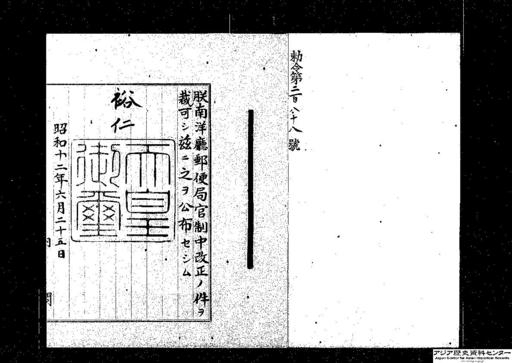 勅令第二百八十八號
朕南洋廳郵便局官制中改正ノ件ヲ
裁可シ茲ニ之ヲ公布セシム
裕仁
天皇御璽
昭和十二年六月二十五日
アジア歴史資料センター
Japan Center for Asian Historical Records